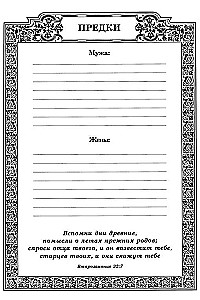 ПРЕДКИ
Мужа:
Жены:
Вспомни дни древние,
помысли о летах прежних родов;
спроси отца твоего, и он возвестит тебе,
старцев твоих, и они скажут тебе
Второзаконие 32:7